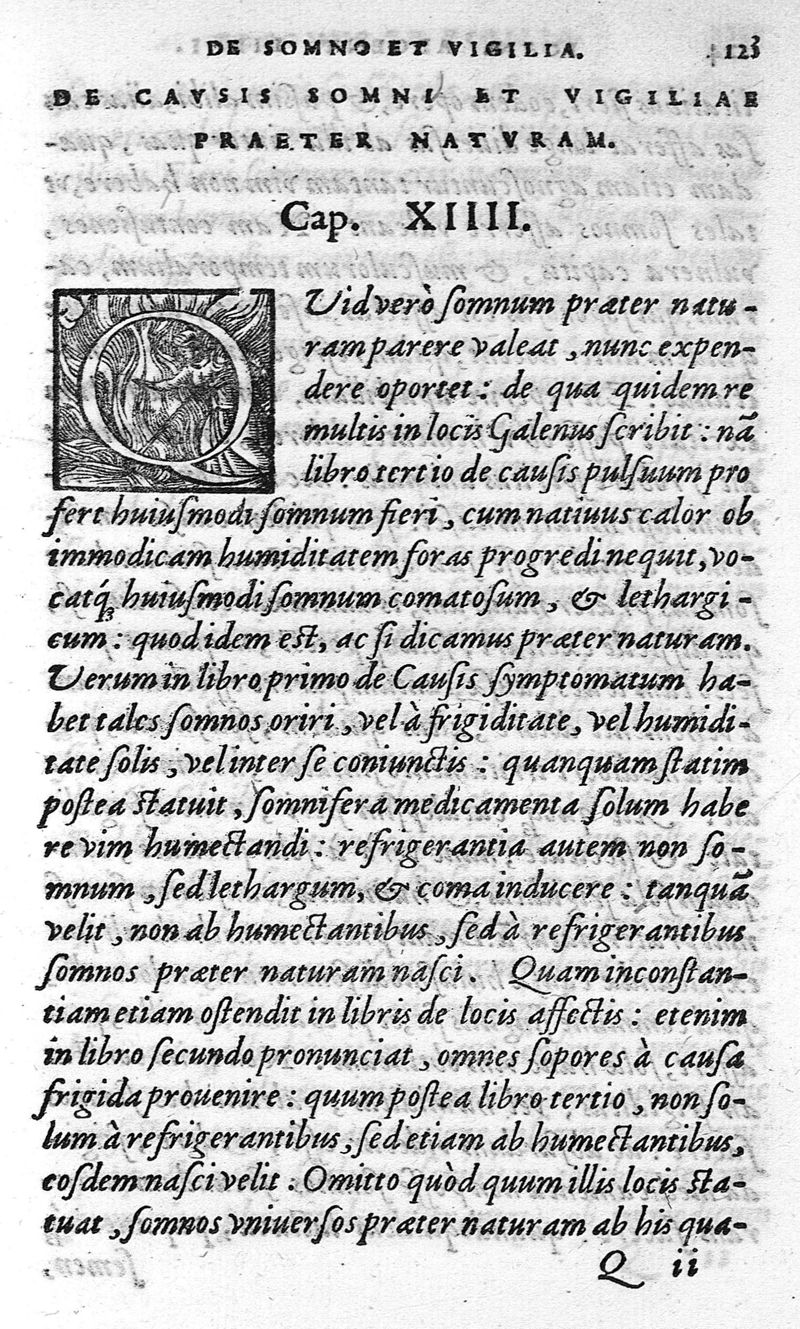 DE SOMNO ET VIGILIA. 123
DE CAVSIS SOMNI ET VIGILIAE
PRAETER NATVRAM.
Cap. XIIII.
QVid verò ſomnum præter natu-
ram parere valeat, nunc expen-
dere oportet: de qua quidem re
multis in locis Galenus ſcribit: nā
libro tertio de cauſis pulſuum pro
fert huiuſmodi ſomnum fieri, cum natiuus calor ob
immodicam humiditatem foras progredi nequit, vo-
catq́; huiuſmodi ſomnum comatoſum, & lethargi-
cum: quod idem est, ac ſi dicamus præter naturam.
Verum in libro primo de Cauſis ſymptomatum ha-
bet tales ſomnos oriri, vel à frigiditate, vel humidi-
tate ſolis, vel inter ſe coniunctis: quanquam ſtatim
poſtea ſtatuit, ſomnifera medicamenta ſolum habe
re vim humectandi: refrigerantia autem non ſo-
mnum, ſed lethargum, & coma inducere: tanquā
velit, non ab humectantibus, ſed à refrigerantibus
ſomnos præter naturam naſci. Quam inconſtan-
tiam etiam oſtendit in libris de locis affectis: etenim
in libro ſecundo pronunciat, omnes ſopores à cauſa
frigida prouenire: quum poſtea libro tertio, non ſo-
lum à refrigerantibus, ſed etiam ab humectantibus,
eoſdem naſci velit. Omitto quòd quum illis locis ſta-
tuat, ſomnos vniuerſos præter naturam ab his qua-
Q ii